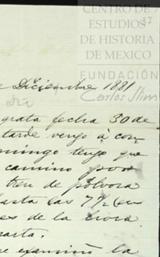 CENTRO DE
ESTUDIOS
DE HISTORIA
DE MEXICO
FUNDACIÓN
Carlos Slim
Diciembre 1881
grata fecha 30 de
tarde vengo á con
mingo tengo que
camino pos
tren de pólvora
asta las 7½ en
es de la
arta.
e examinó la